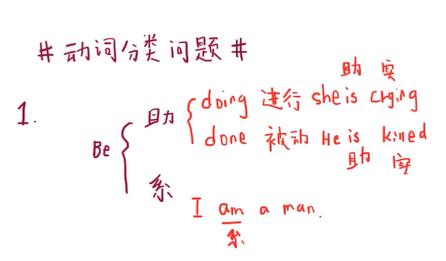 # 动词分类问题 #
助 实
1.
Be
助
doing 进行 she is crying
done 被动 He is killed
助 实
系
I am a man.
系